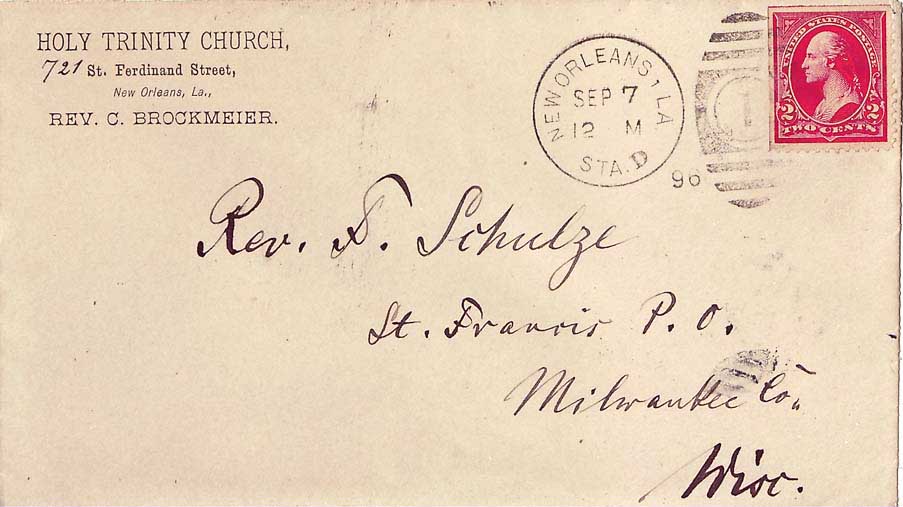 HOLY TRINITY CHURCH,
721 St. Ferdinand Street,
New Orleans, La.,
REV. C. BROCKMEIER.
NEW ORLEANS 1 LA.
SEP 7
12 M
STA. D
96
1
UNITED STATES POSTAGE
2 2
TWO CENTS
Rev. F. Schulze
St. Francis P. O.
Milwaukee Co.
Wisc.